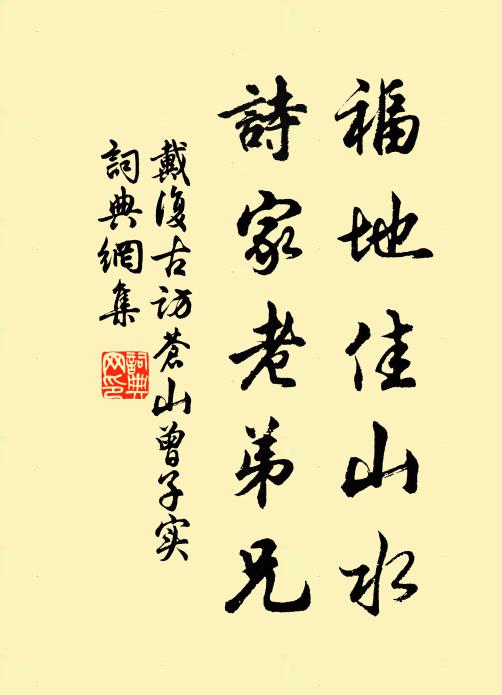 福地佳山水
詩家老弟兄
戴復古访蒼山曾子实
詞典網集
詞典网印